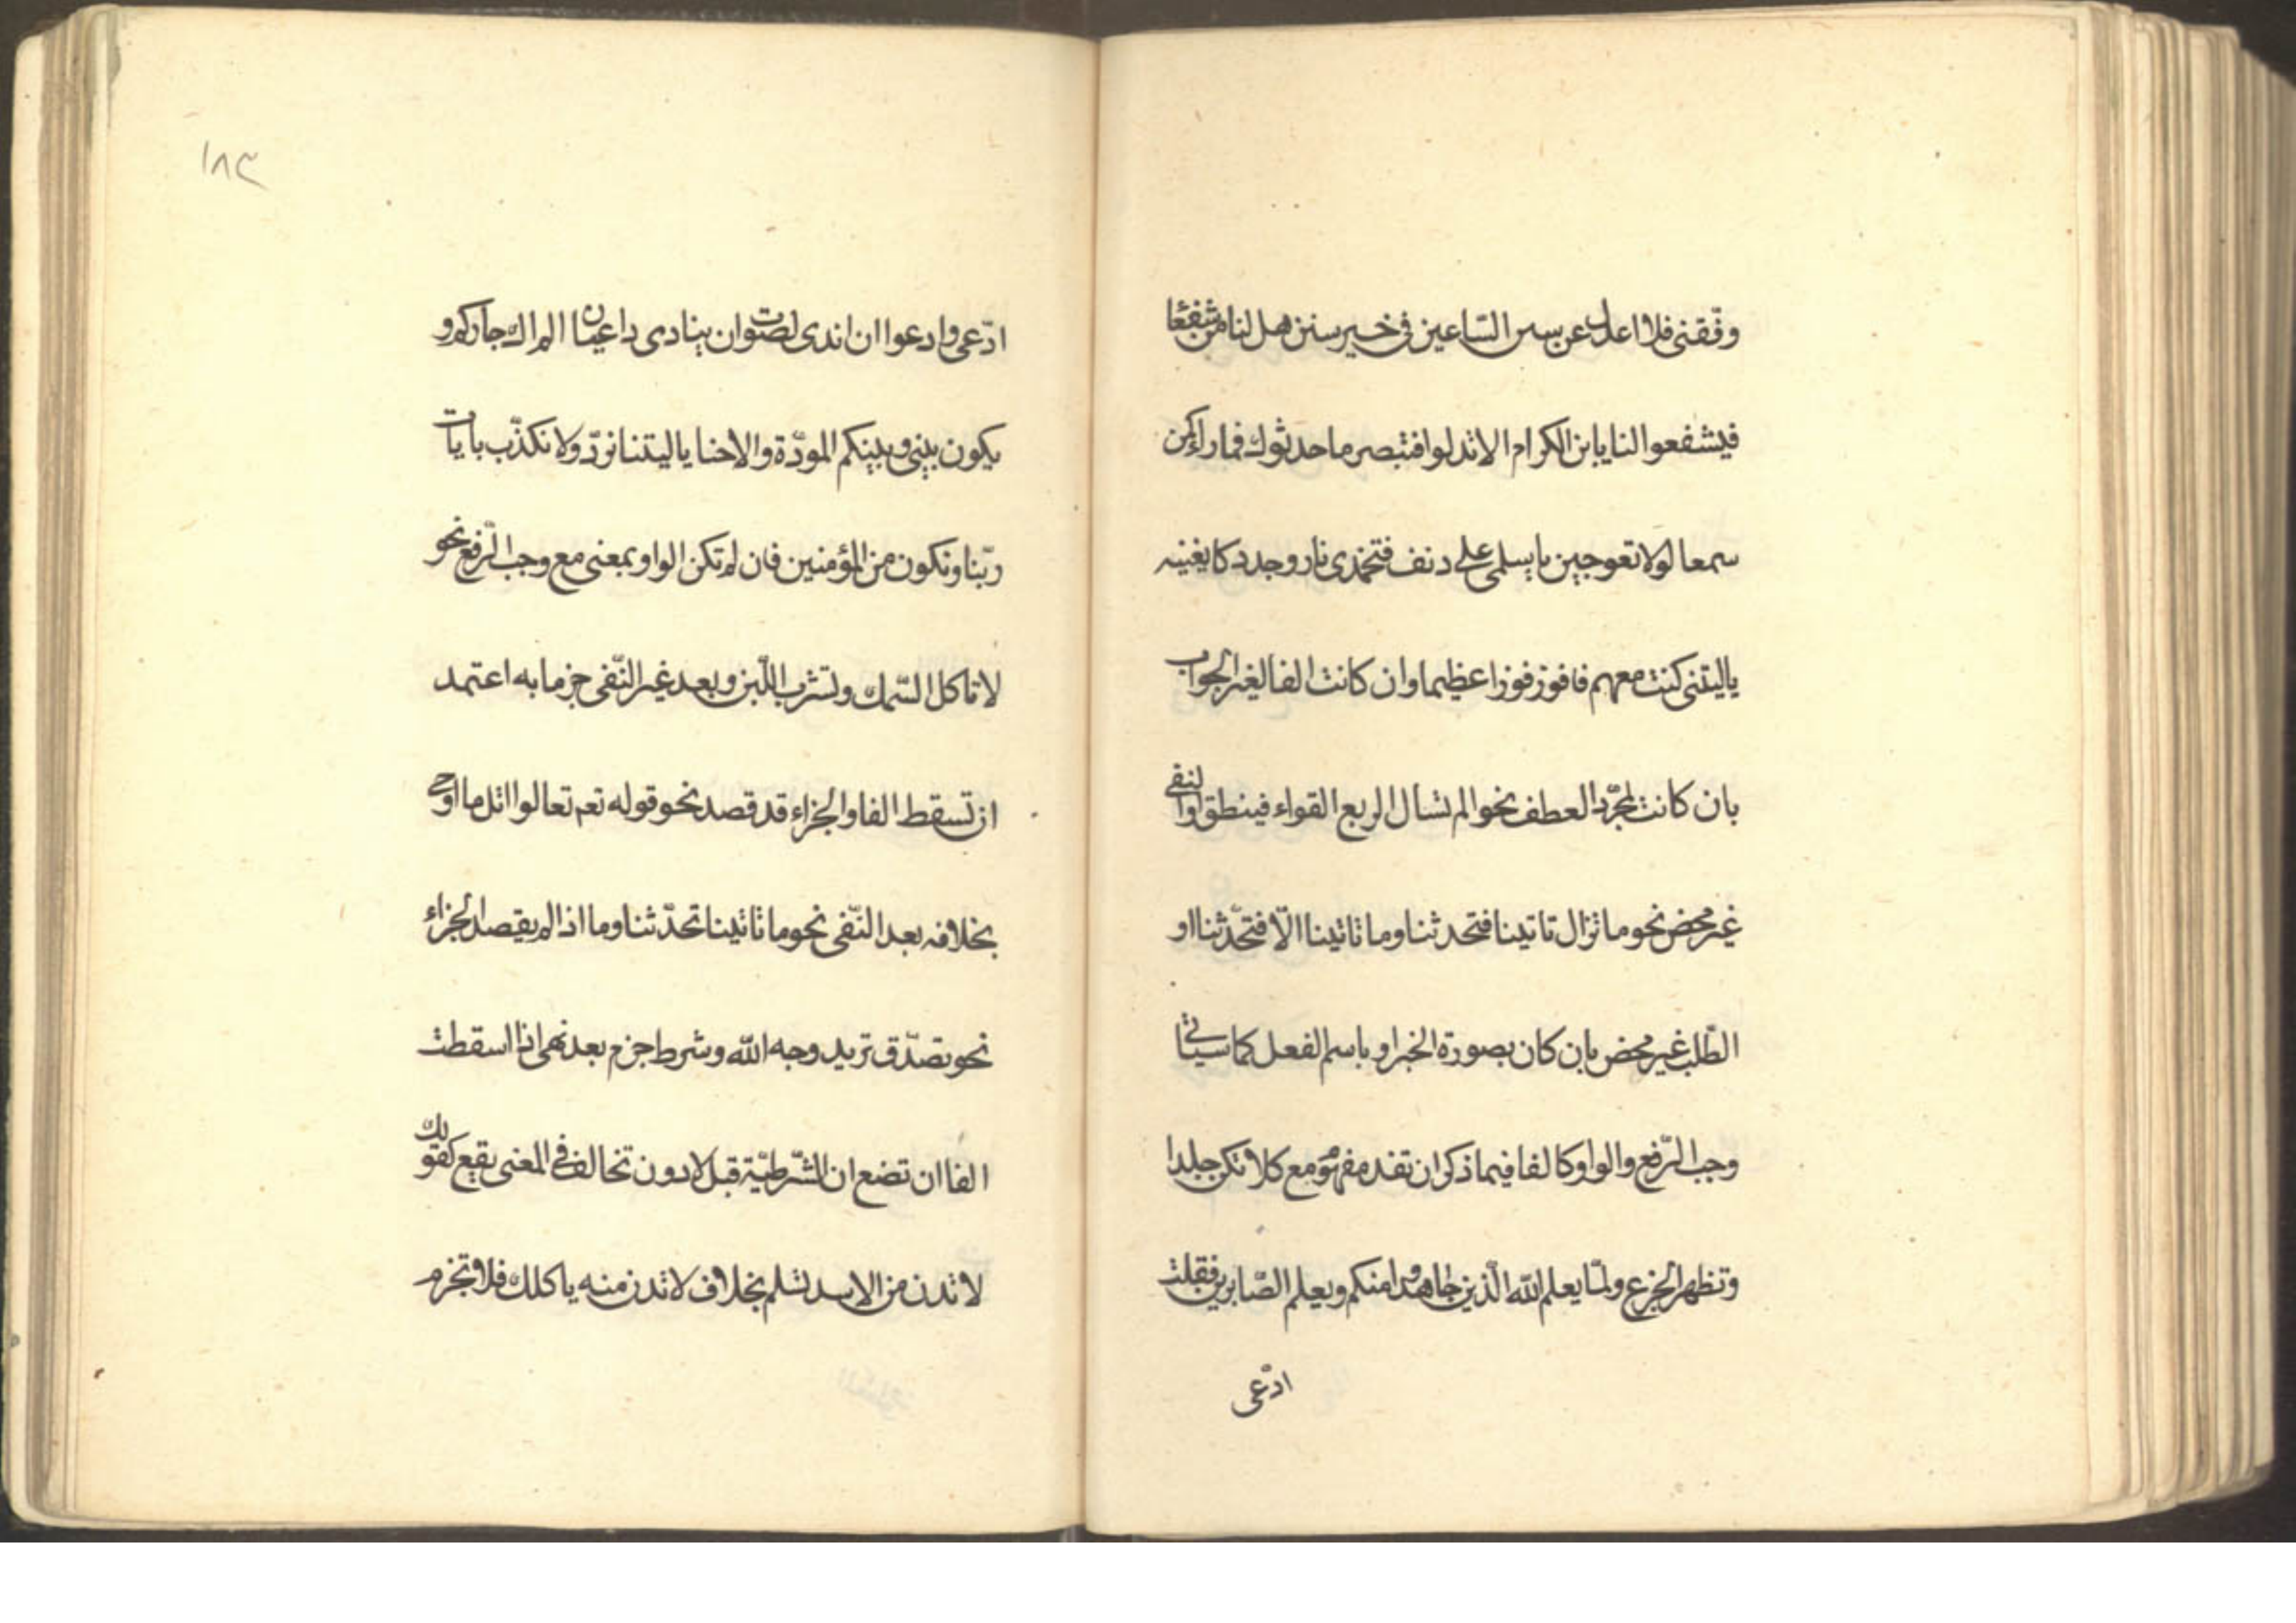 وفّقنى فلا اعدل عن سنن السّاعين فى خير سنن هل لنا من شفعا
فيشفعوا لنا يا بن الكرام الا تدلوا فتبصر ما حدثوك فما راء كمن
سمعا لولا تعوجين يا سلمى على دنف فتخمدى نار وجد كا يغنيه
ياليتنى كنت معهم فافوز فوزا عظيما وان كانت الفا لغير الجواب
بان كانت لمجرّد العطف نحو الم تسال الربع القواء فينطق او النفى
غير محض نحو ما تزال تاتينا فتحدثنا وما تاتينا الّا فتحدّثنا او
الطّلب غير محض بان كان بصورة الخبر او باسم الفعل كما سياتى
وجب الرّفع والواو كالفا فيما ذكر ان تفد مفهوم مع كلا تكن جلدا
وتظهر الجزع ولمّا يعلم الله الّذين جاهدوا منكم ويعلم الصّابرين فقلت
ادّعى
١٨٣
ادّعى وادعوا ان اندى لصوت ان ينادى داعيان الم اك جاركم و
يكون بينى وبينكم المودّة والاخا ياليتنا نردّ ولا نكذّب بايات
ربّنا ونكون من المؤمنين فان لم تكن الواو بمعنى مع وجب الرّفع نحو
لا تاكل السّمك وتشرب اللّبن وبعد غير النّفى جزما به اعتمد
ان تسقط الفا والجزاء قد قصد نحو قوله تعم تعالوا اتل ما اوحى
بخلافه بعد النّفى نحو ما تاتينا تحدّثنا وما اذا لم يقصد الجزاء
نحو تصدّق تريد وجه الله وشرط جزم بعد نهى اذا اسقطت
الفا ان تضع ان الشّرطيّة قبل لا دون تخالف فى المعنى يقع كقولك
لا تدن من الاسد تسلم بخلاف لا تدن منه ياكلك فلا تجزم